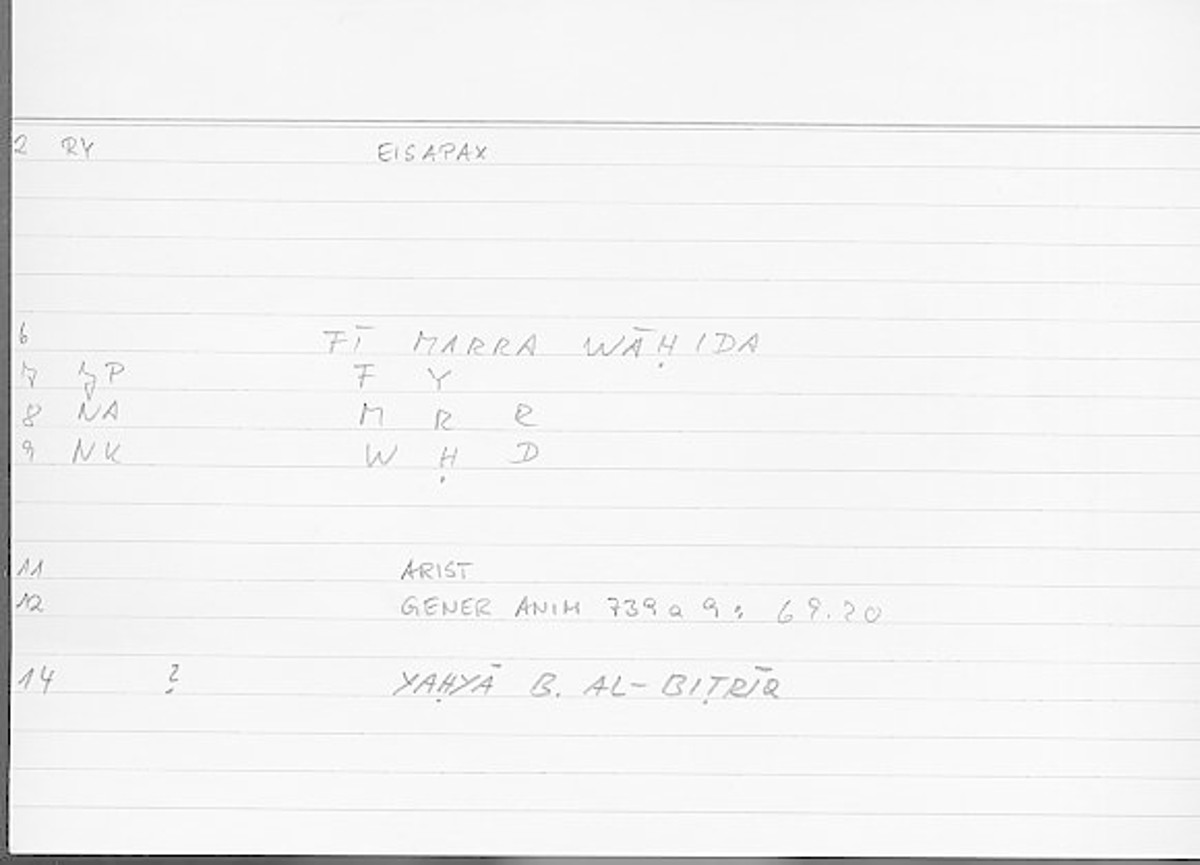 2 RY EISAPAX
6 FĪ MARRA WĀḤIDA
7 JP F Y
8 NA M R R
9 NK W Ḥ D
11 ARIST
12 GENER ANIM 739a9: 69.20
14 ? YAḤYĀ B. AL-BIṬRĪQ